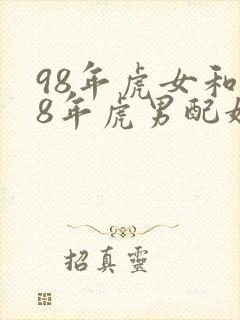 98年虎女和
8年虎男配
招真靈